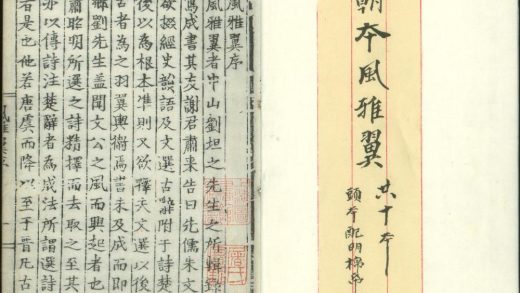 朝本風雅翼
共十本
頭本配明棉紙
風雅翼序
風雅翼者中山劉坦之先生之所輯錄
為成書其友謝君肅來告曰先儒朱文
欲掇經史韻語及文選古辭附于詩楚
後以為根本準則又欲擇夫文選以後
古者為之羽翼輿衛焉書未及成而即
劉先生蓋聞文公之風而興起者也
蕭昭明所選之詩精擇而去取之至其
亦以傳詩注楚辭者為成法所謂選詩
者是也他若唐虞而降以至于晉凡古